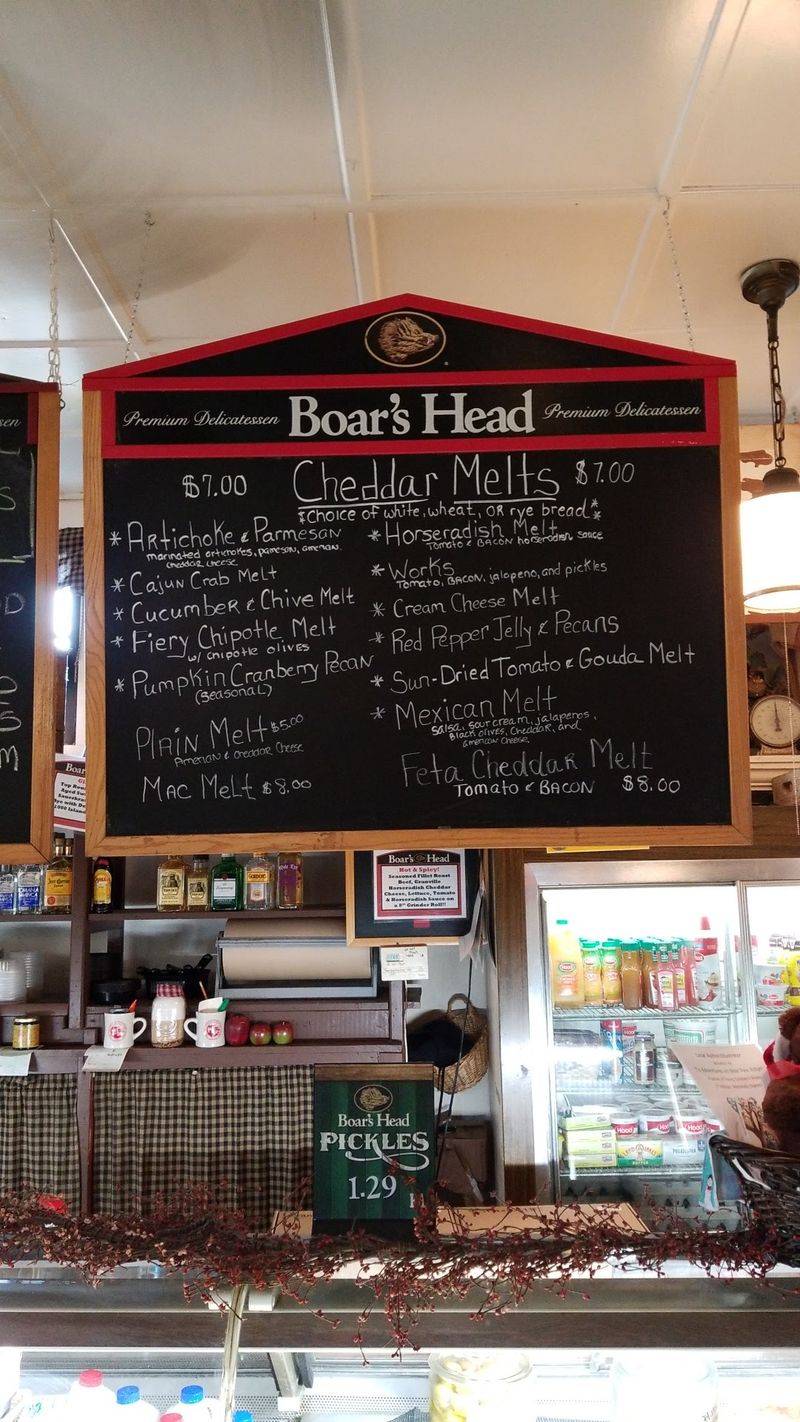 Premium Delicatessen Boar's Head Premium Delicatessen
$7.00 Cheddar Melts $7.00
*Choice of white, wheat, OR rye bread*
* Artichoke & Parmesan
marinated artichokes, parmesan, american,
cheddar cheese
* Cajun Crab Melt
* Cucumber & Chive Melt
* Fiery Chipotle Melt
w/ chipotle olives
* Pumpkin Cranberry Pecan
(seasonal)
Plain Melt $5.00
American & cheddar cheese
Mac Melt $8.00
* Horseradish Melt
Tomato & BACON horseradish sauce
* Works
Tomato, BACON, jalapeno, and pickles
* Cream Cheese Melt
* Red Pepper Jelly & Pecans
* Sun-Dried Tomato & Gouda Melt
* Mexican Melt
Salsa, sour cream, jalapenos,
Black olives, cheddar, and
american cheese
Feta Cheddar Melt
Tomato & BACON $8.00
Boar's Head
Hot & Spicy!
Seasoned Fillet Roast
Beef, Granville
Horseradish Cheddar
Cheese, Lettuce, Tomato
& Horseradish Sauce on
a 8" Grinder Roll!!
Boar's Head
PICKLES
1.29
Hood
Hood
Hood